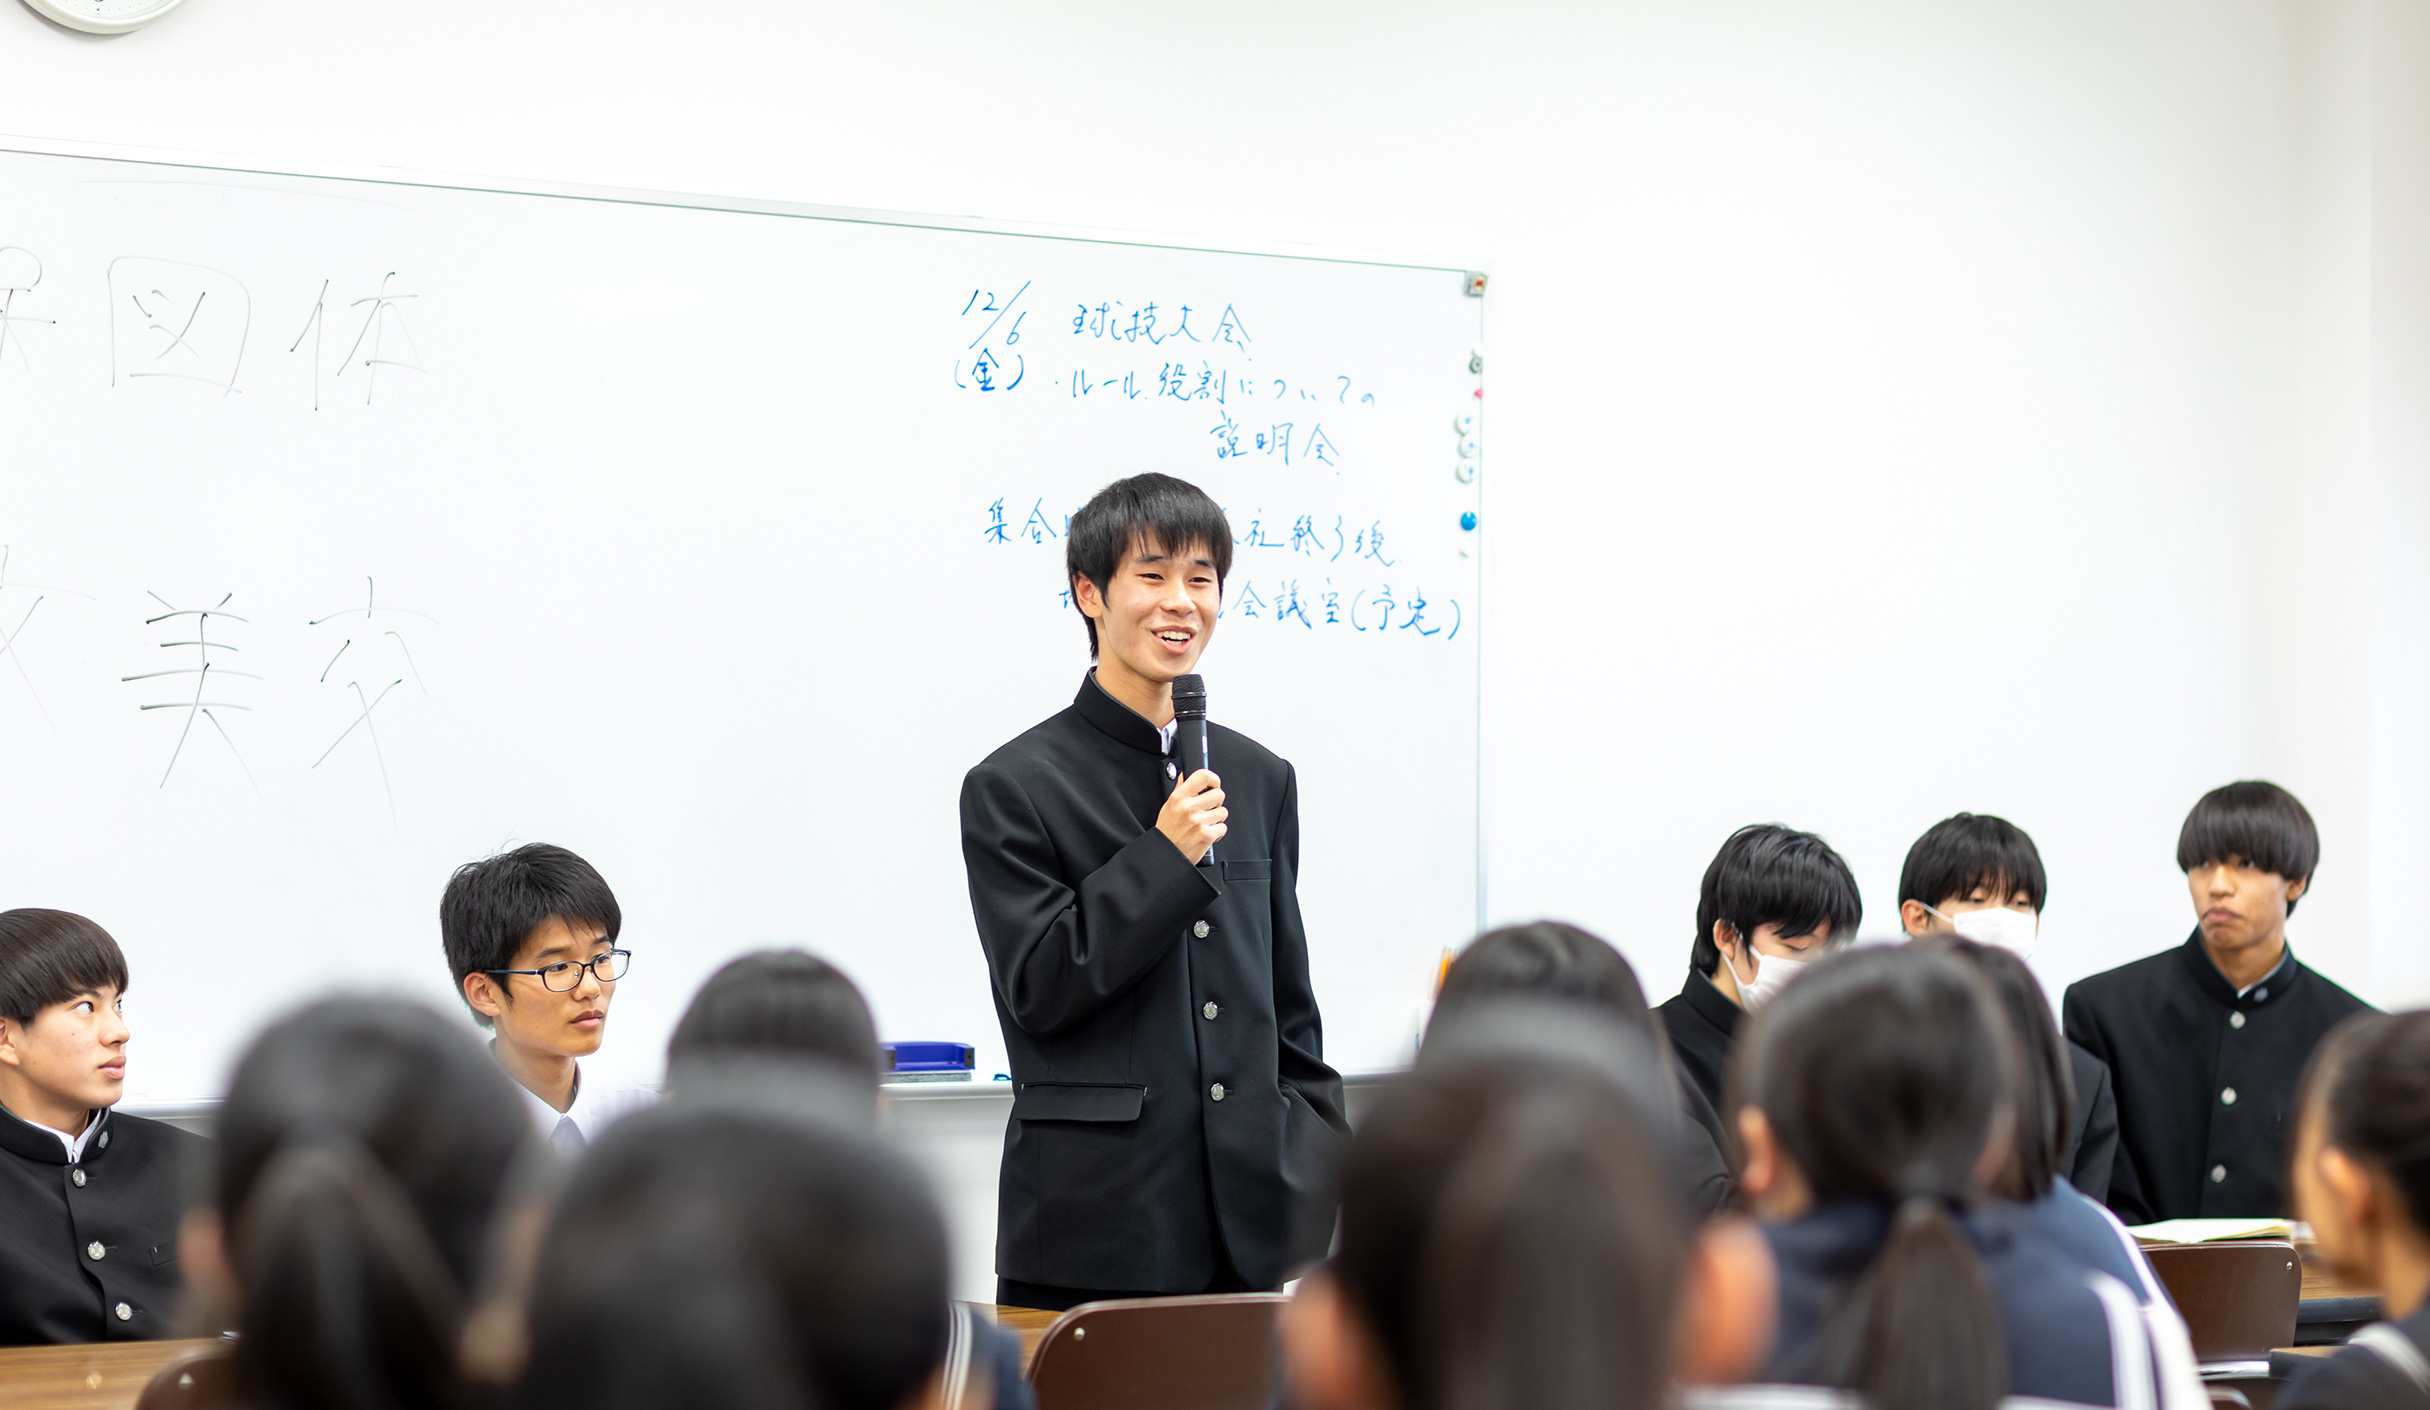 図体
美交
12/6 球技大会
(金) ・ルール、役割についての
説明会
集合 終了後
会議室(予定)